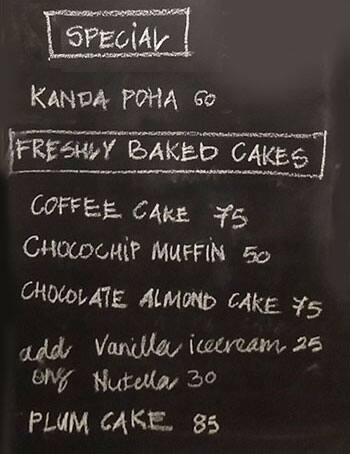 SPECIAL
KANDA POHA 60
FRESHLY BAKED CAKES
COFFEE CAKE 75
CHOCOCHIP MUFFIN 50
CHOCOLATE ALMOND CAKE 75
add Vanilla icecream 25
ons Nutella 30
PLUM CAKE 85